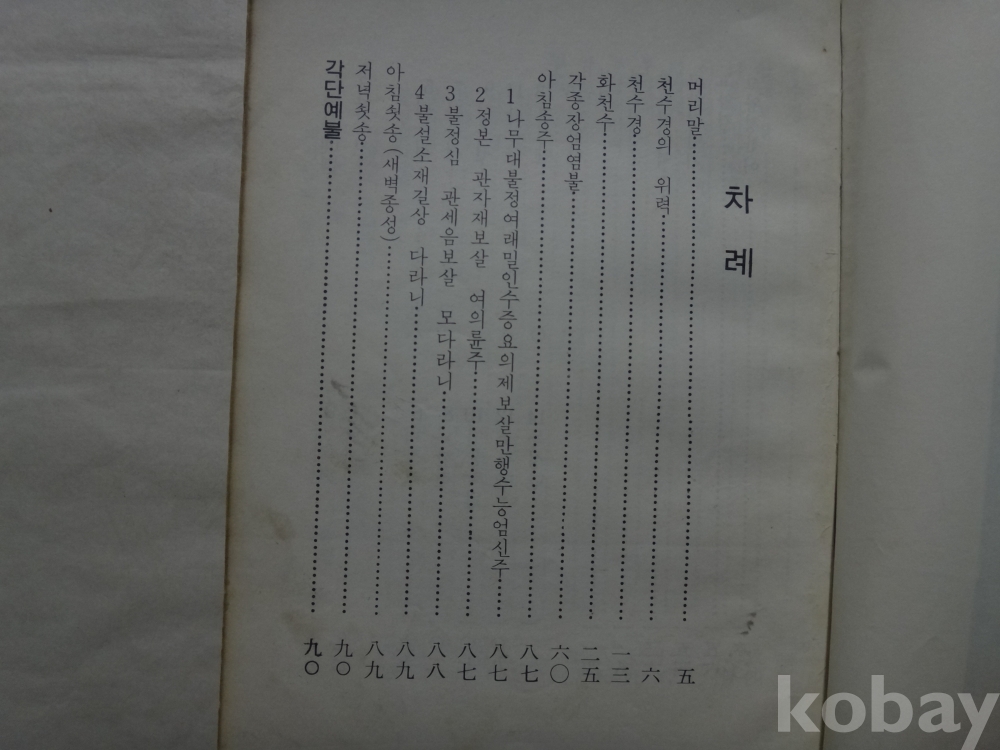 차례
머리말 五
천수경의 위력 六
천수경 一三
화천수 二五
각종장엄염불 六〇
아침송주 八七
1 나무대불정여래밀인수증요의제보살만행수능엄신주 八七
2 정본 관자재보살 여의륜주 八七
3 불정심 관세음보살 모다라니 八八
4 불설소재길상 다라니 八九
아침쇳송(새벽종성) 八九
저녁쇳송 九〇
각단예불 九〇
kobay